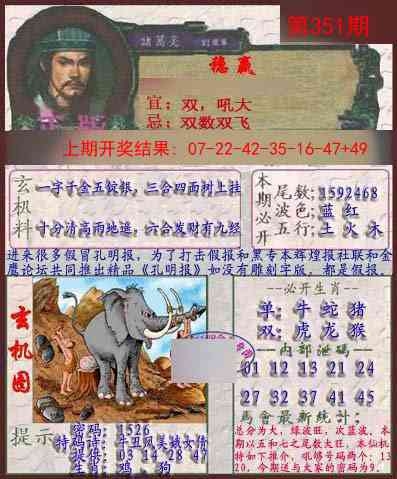 第351期
諸葛亮
稳赢
宜：双，吼大
忌：双数双飞
上期开奖结果：07-22-42-35-16-47+49
玄机料
一字千金五锭银，三合四面树上挂
十分清高雨地遮，六合发财有九经
本期必开
尾数;1592468
波色;蓝 红
五行;土 火 木
进来很多假冒孔明报，为了打击假报和黑专本辉煌报社联和金
鹰论坛共同推出精品《孔明报》如没有雕刻字版，都是假报。
玄机图
必开生肖
单:牛 蛇 猪
双:虎 龙 猴
内部泄码
01 12 13 21 24
27 32 37 41 45
馬會最新統计:
总分为大，绿波旺，次蓝波。本
期以五和七之尾数大旺，本仙机
特如下推介，吼够号码两个：13
20，今期送与大家的密码为9.
提示
密码：1526
特码诗：牛丑凤美贼女债
提供：03 14 28 47
生肖：鸡，狗